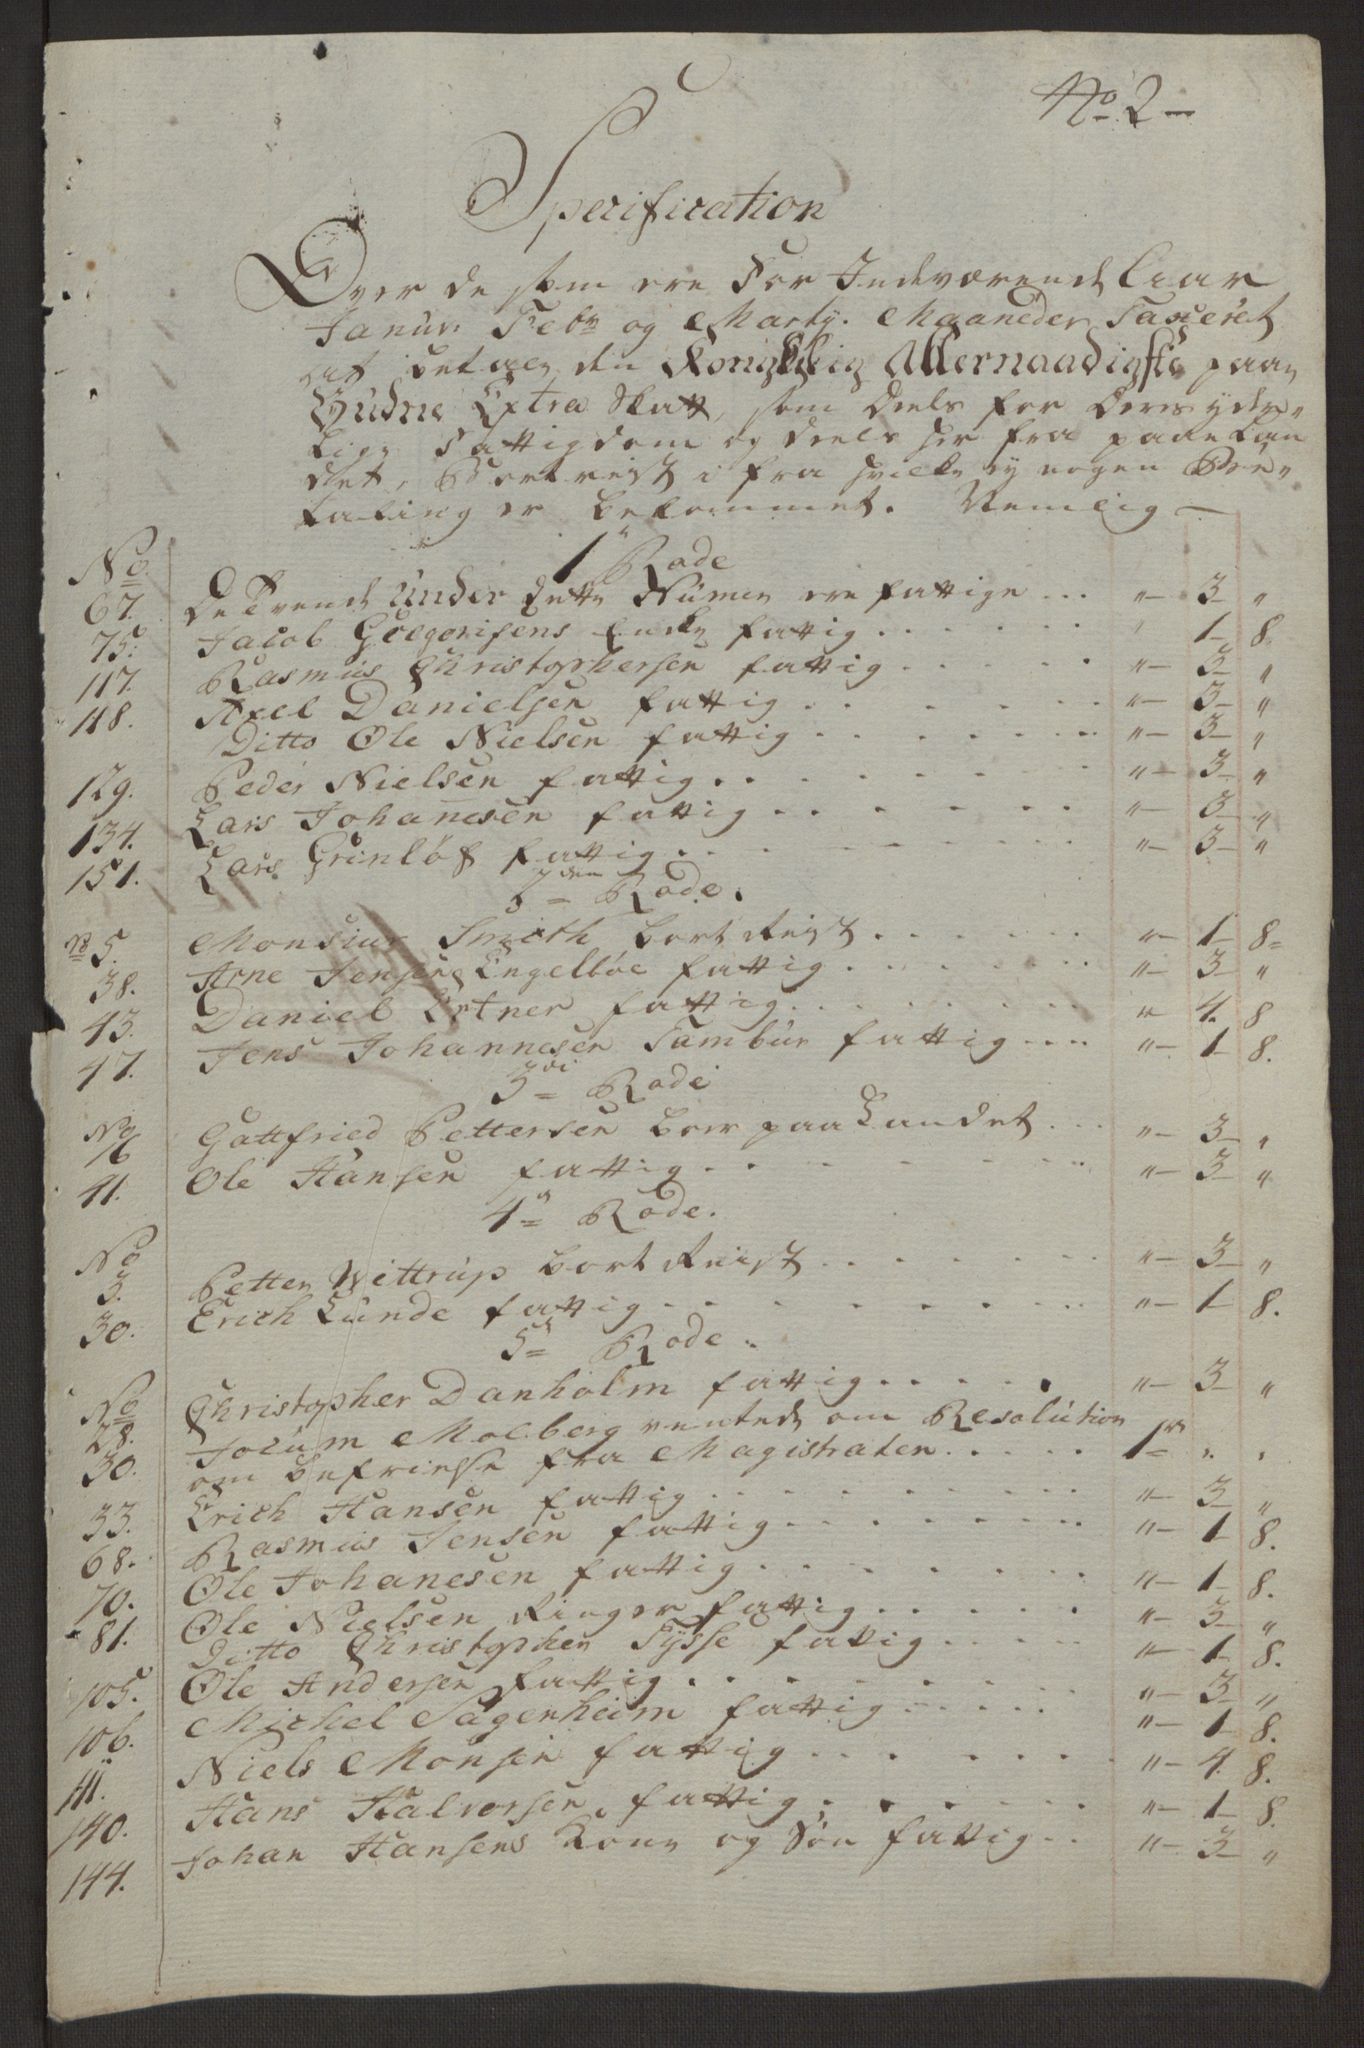 No 2 –
Specification
Over de som ere for Indeværende Aar
Janur: Febr og Marty. Maaneder Taxeret
at betale den Kongelig Allernaadigste paa
Budne Extra Skatt, som deels for deres yder-
lige Fattigdom og deels her fra paa Lan
det, Bortreist i fra hvilke ey nogen Be-
taling er bekommet. Nemlig –
1te Rode
No.
67. De Tvende Under dette Numer ere fattige ... " – 3 – "
75. Jacob Gregorisens Enke fattig . . . . . . " 1 – 8.
117. Rasmus Christophersen fattig . . . . . " – 3 – "
118. Axel Danielsen fattig . . . . . . . " – 3 – "
Ditto Ole Nielsen fattig . . . . . . . " – 3 – "
129. Peder Nielsen fattig . . . . . . . " – 3 – "
134. Lars Johanesen fattig . . . . . . . " – 3 – "
151. Lars Grønløs fattig . . . . . . . " – 3 – "
2den Rode.
No 5. Monsiur Smith bortReist . . . . . . " – 1 – 8 =
38. Arne Jensen Engelbøe fattig . . . . . . " – 3 – "
43. Daniel Ertner fattig . . . . . . . " – 4. 8
47. Jens Johannesen Tambur fattig .... " – 1 – 8.
3die Rode
No
16 Gattfried Pettersen boer paa Landet ... " – 3 – "
41. Ole Hansen fattig . . . . . . . . " – 3 – "
4de Rode.
No
3. Petter Wittrup bortReist . . . . . . . " – 3 – "
30. Erich Lunde fattig . . . . . . . . " – 1 – 8.
5te Rode.
No
28. Christopher Danholm fattig . . . . . . " – 3 – "
30. Jocum Molberg ventede om Resolution
om befrielse fra Magistraten . . . . . 1rd " "
33. Erich Hansen fattig . . . . . . . . " – 3 – "
68. Rasmus Jensen fattig . . . . . . . " – 1 – 8.
70. Ole Johanesen fattig . . . . . . . " – 1 – 8.
81. Ole Nielsen Ringer fattig . . . . . . " – 3 – "
Ditto Christopher Tysse fattig . . . . . " – 1 – 8.
105. Ole Andersen fattig . . . . . . . . " – 3 – "
106. Michel Sagenheim fattig . . . . . . " – 1 – 8.
111. Niels Monsen fattig . . . . . . . . " – 4. 8.
140. Hans Halvorsen fattig . . . . . . . " – 1 – 8.
144. Johan Hansens Kone og Søn fattig . . . " – 3 – "